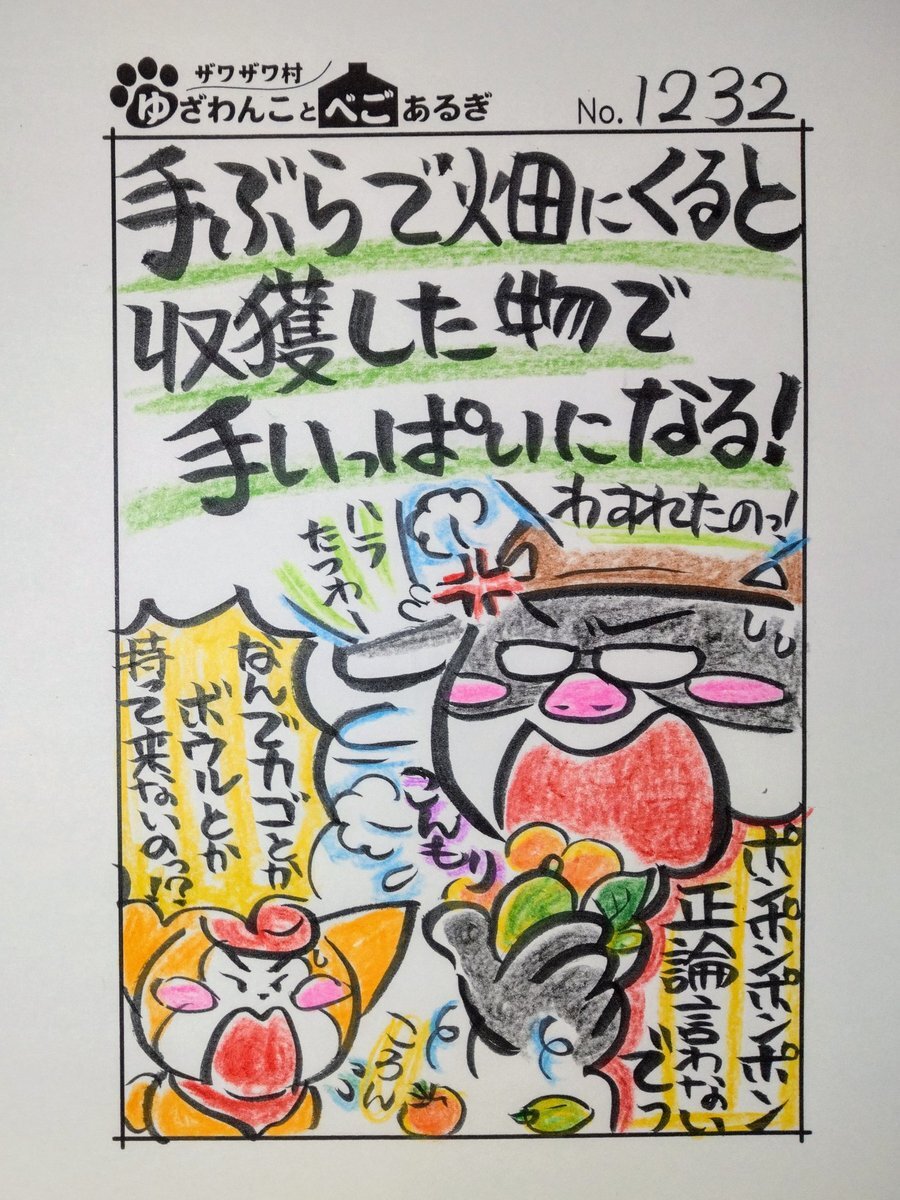 ザワザワ村
ゆざわんことべごあるぎ
No.1232
手ぶらで畑にくると
収獲した物で
手いっぱいになる!
わすれたのっ!
ハラ
たつわー
なんでカゴとか
ボウルとか
持って来ないのっ!?
こんもり
ポンポンポンポン
正論言わない
でっ
ころん